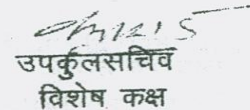 उपर्कुलसचिव
विशेष कक्ष